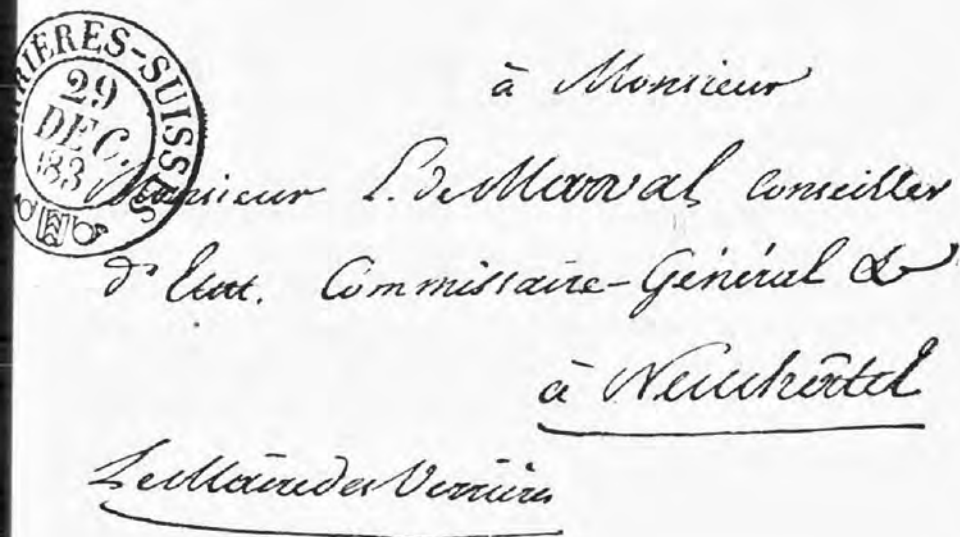 RIÈRES-SUISSES
29
DEC.
183
à Monsieur
Monsieur L. de Marval Conseiller
d'Etat. Commissaire-Général &
à Neuchâtel
Le Maire des Verrières